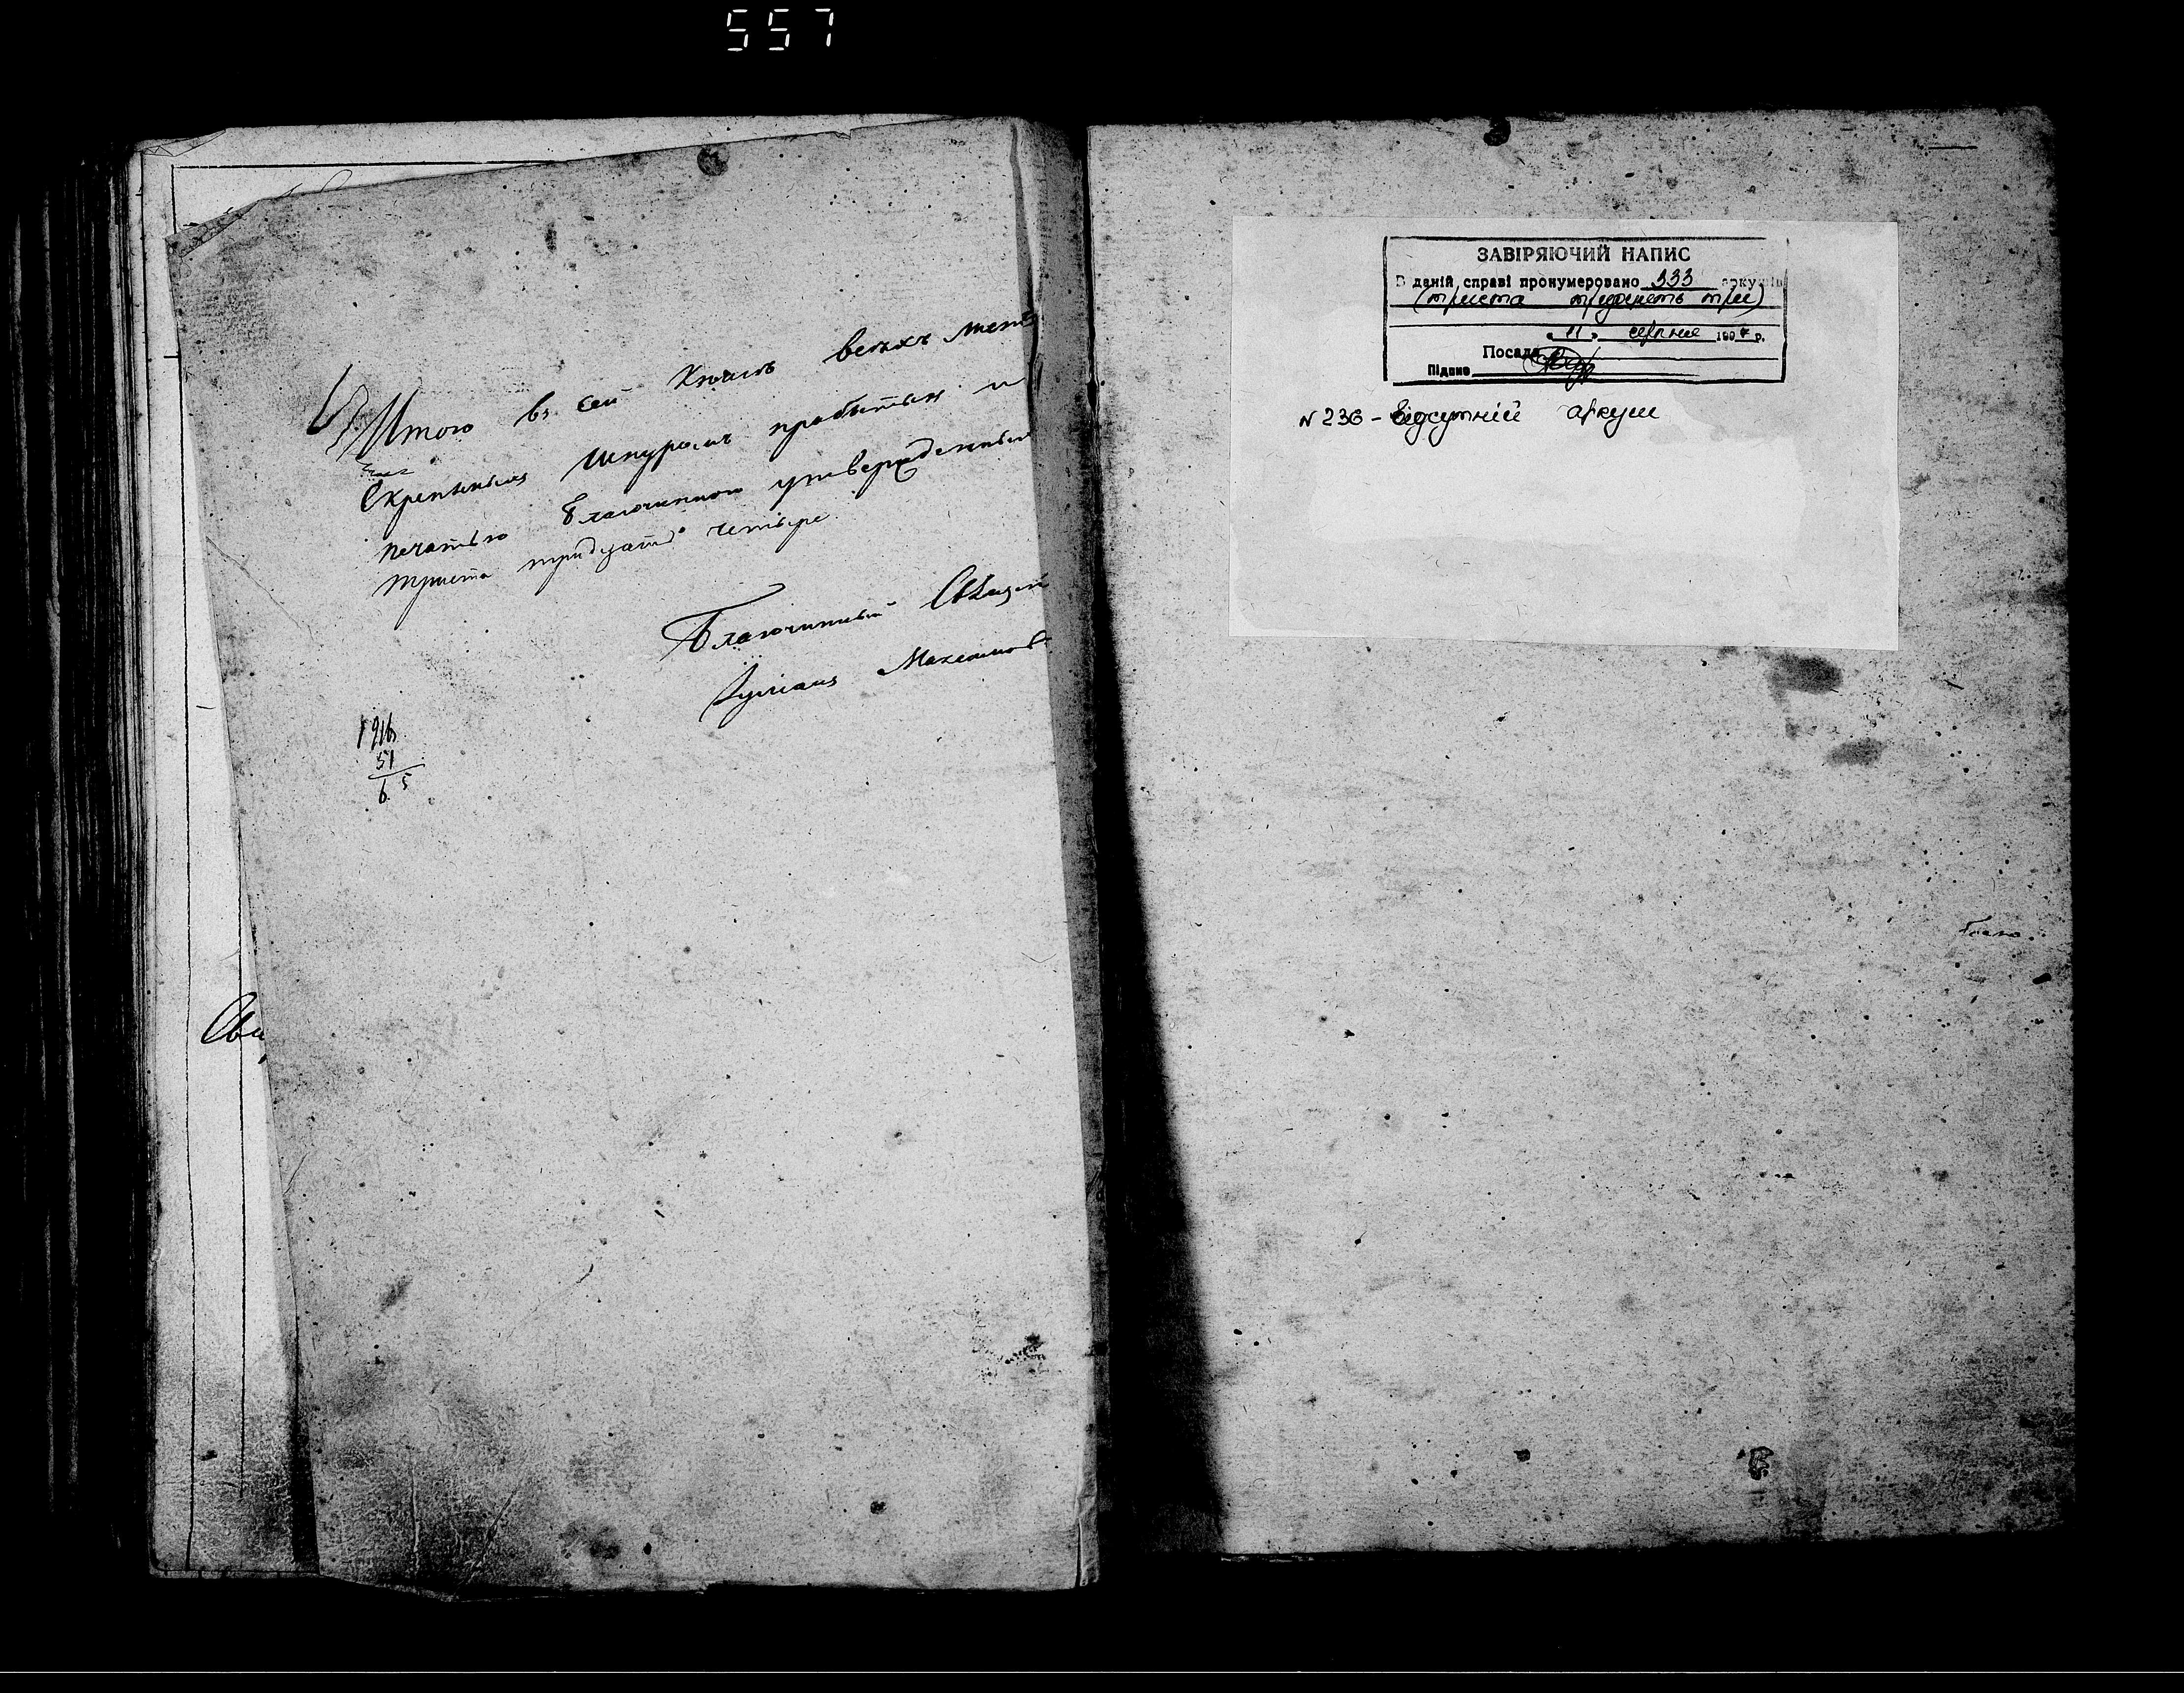 557
Итого въ сей Книгѣ всѣхъ мет
Скрепленыхъ шнуромъ пробитых и
печатью благочинною утвержденныхъ
триста тридцать четыре
Благочинный Свящ
Іуліанъ Максимовъ
1916
51
6 5
Сви
ЗАВІРЯЮЧИЙ НАПИС
В даній справі пронумеровано 333 аркушів
(триста тридцять три)
« 11 » серпня 1997 р.
Посада
Підпис
N 236 - Відсутній аркуш